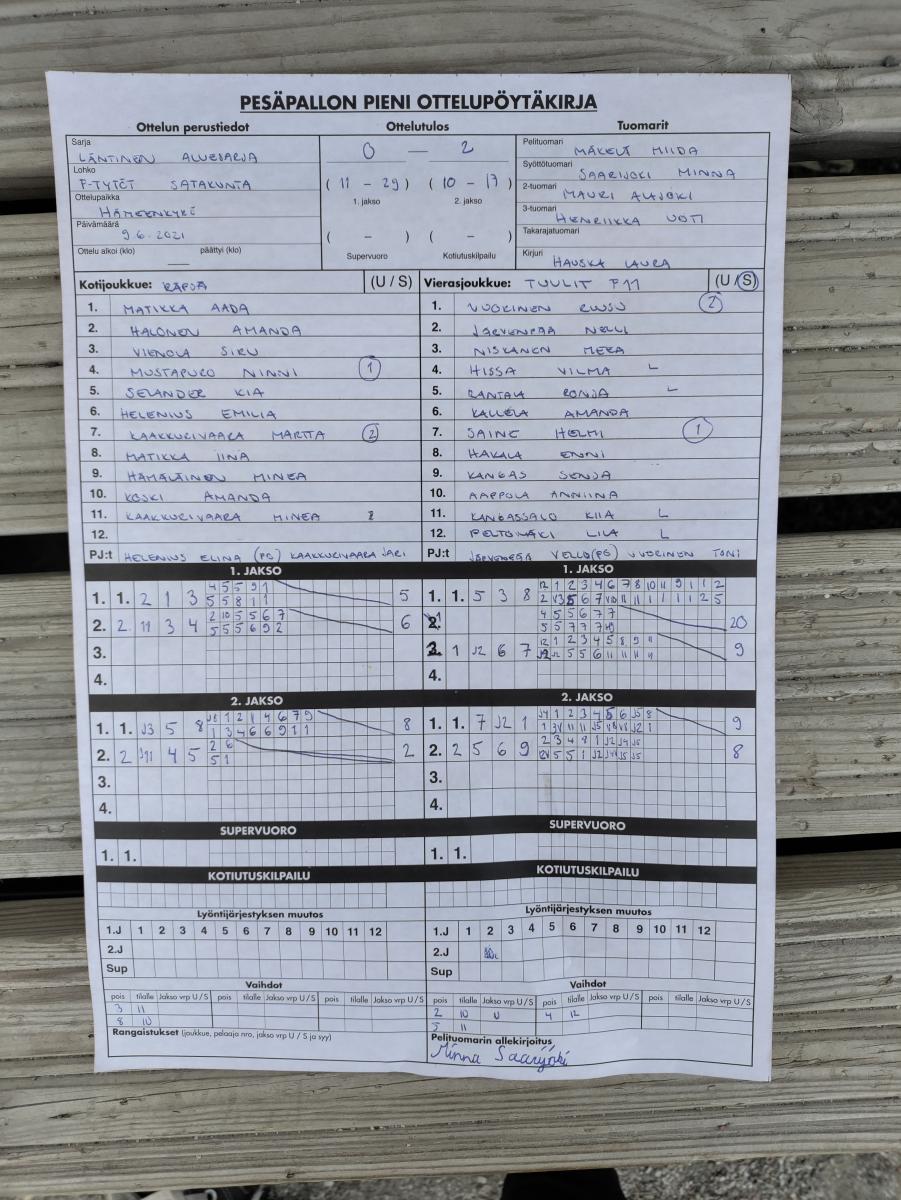 PESÄPALLON PIENI OTTELUPÖYTÄKIRJA
Ottelun perustiedot Ottelutulos Tuomarit
Sarja
LÄNTINEN ALUESARJA
Lohko
F-TYTÖT SATAKUNTA
Ottelupaikka
HÄMEENKYRÖ
Päivämäärä
9.6.2021
Ottelu alkoi (klo) päättyi (klo)
0 — 2
( 11 - 29 ) ( 10 - 17 )
1. jakso 2. jakso
( - ) ( - )
Supervuoro Kotiutuskilpailu
Pelituomari
MÄKELÄ MIIDA
Syöttötuomari
SAARIJOKI MINNA
2-tuomari
MAURI ALAJOKI
3-tuomari
HENRIIKKA UOTI
Takarajatuomari
Kirjuri
HAUSKA LAURA
Kotijoukkue: RÄPSÄ (U / S)
1. MATIKKA AADA
2. HALONEN AMANDA
3. VIENOLA SIRU
4. MUSTAPURO NINNI 1
5. SELANDER KIA
6. HELENIUS EMILIA
7. KAAKKURIVAARA MARTTA 2
8. MATIKKA IINA
9. HÄMÄLÄINEN MINEA
10. KOSKI AMANDA
11. KAAKKURIVAARA MINEA
12.
PJ:t HELENIUS ELINA (PG) KAAKKURIVAARA JARI
Vierasjoukkue: TUULIT F11 (U / S)
1. VUORINEN RUUSU 2
2. JÄRVENPÄÄ NELLI
3. NISKANEN MERA
4. HISSA VILMA L
5. RANTALA RONJA L
6. KALLELA AMANDA
7. SAINE HELMI 1
8. HAKALA ENNI
9. KANGAS SENJA
10. AAPPOLA ANNIINA
11. KANGASSALO KIIA L
12. PELTOMÄKI LILA L
PJ:t JÄRVENPÄÄ VELLU (PG) VUORINEN TONI
1. JAKSO
1. 1. 2 1 3
4 5 5 9 1
5 5 8 1 1
5
2. 2 11 3 4
2 10 5 5 6 7
5 5 5 6 9 2
6
3.
4.
1. JAKSO
1. 1. 5 3 8
12 1 2 3 4 6 7 8 10 11 9 1 1 2
4 5 5 6 7 7
5 5 7 7 7
20
1 J2 6 7
12 1 2 3 4 5 8 9 11
9
4.
2. JAKSO
1. 1. J3 5 8
1 2 1 4 6 7 9
1 3 4 6 6 9 1 1
8
2. 2 J11 4 5
2 6
5 1
2
3.
4.
2. JAKSO
1. 1. 7 J2 1
J4 1 2 3 4 5 6 J5 8
9
2. 2 5 6 9
2 3 4 8 1 J2 J4 J5
8
3.
4.
SUPERVUORO
1. 1.
SUPERVUORO
1. 1.
KOTIUTUSKILPAILU
KOTIUTUSKILPAILU
Lyöntijärjestyksen muutos
1.J 1 2 3 4 5 6 7 8 9 10 11 12
2.J
Sup
Lyöntijärjestyksen muutos
1.J 1 2 3 4 5 6 7 8 9 10 11 12
2.J
Sup
Vaihdot
pois tilalle Jakso vrp U / S pois tilalle Jakso vrp U / S pois tilalle Jakso vrp U / S
3 11
8 10
Rangaistukset (joukkue, pelaaja nro, jakso vrp U / S ja syy)
Vaihdot
pois tilalle Jakso vrp U / S pois tilalle Jakso vrp U / S pois tilalle Jakso vrp U / S
2 10 U 4 12
5 11
Pelituomarin allekirjoitus
Minna Saarijoki